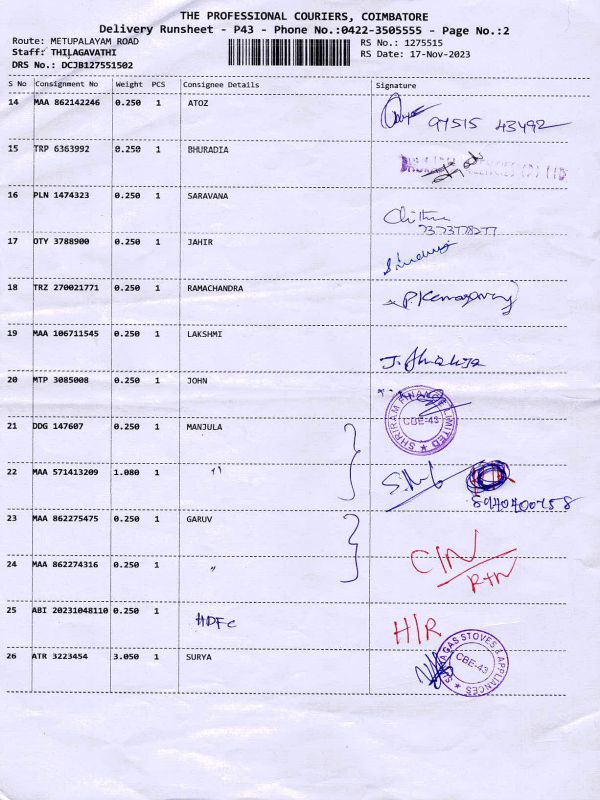 THE PROFESSIONAL COURIERS, COIMBATORE
Delivery Runsheet - P43 - Phone No.:0422-3505555 - Page No.:2
Route: METUPALAYAM ROAD RS No.: 1275515
Staff: THILAGAVATHI RS Date: 17-Nov-2023
DRS No.: DCJB127551502
S No Consignment No Weight PCS Consignee Details Signature
14 MAA 862142246 0.250 1 ATOZ
97515 43492
15 TRP 6363992 0.250 1 BHURADIA
16 PLN 1474323 0.250 1 SARAVANA
Chithra
7373778277
17 OTY 3788900 0.250 1 JAHIR
18 TRZ 270021771 0.250 1 RAMACHANDRA
19 MAA 106711545 0.250 1 LAKSHMI
20 MTP 3085008 0.250 1 JOHN
SHRIRAM FINANCE LIMITED
CBE-43
21 DDG 147607 0.250 1 MANJULA
22 MAA 571413209 1.080 1 "
8940400758
23 MAA 862275475 0.250 1 GARUV
C/N
24 MAA 862274316 0.250 1 "
RTN
25 ABI 20231048110 0.250 1 HDFC
H/R
26 ATR 3223454 3.050 1 SURYA
SURYA GAS STOVES & APPLIANCES
CBE-43